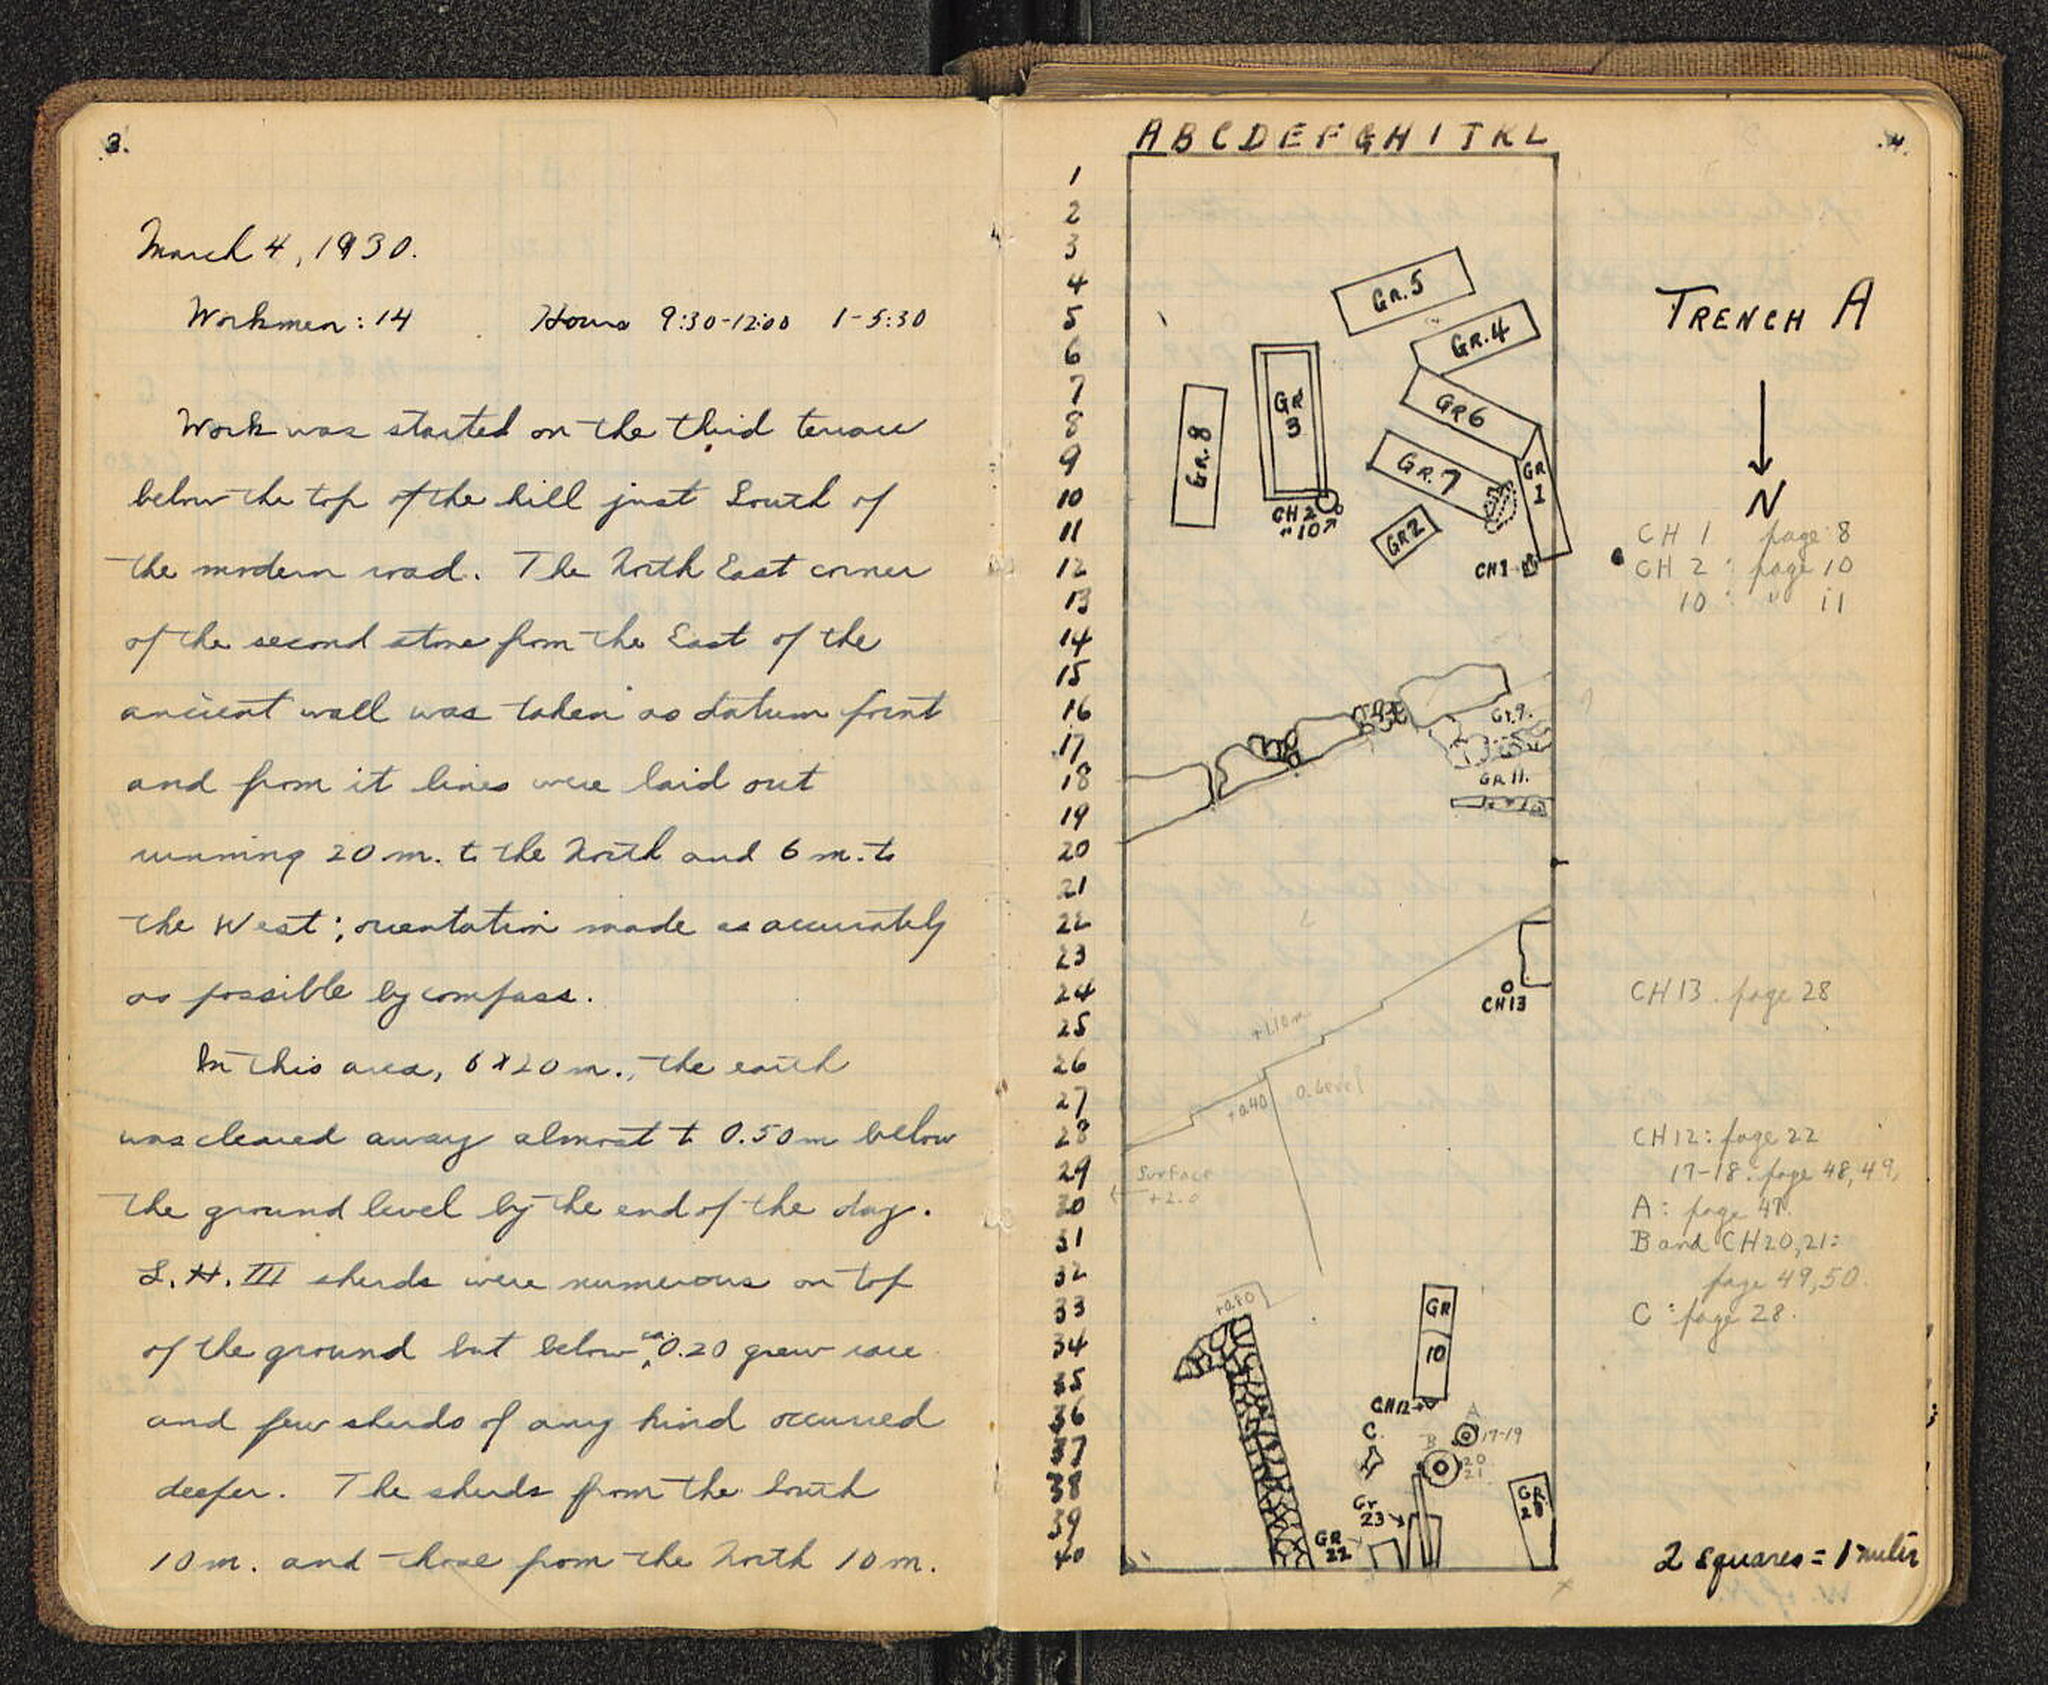 3.
March 4, 1930.
Workmen: 14 Hours 9:30-12:00 1-5:30
Work was started on the third terrace
below the top of the hill just South of
the modern road. The North East corner
of the second stone from the East of the
ancient wall was taken as datum point
and from it lines were laid out
running 20 m. to the North and 6 m. to
the West; orientation made as accurately
as possible by compass.
In this area, 6 x 20 m., the earth
was cleared away almost to 0.50 m below
the ground level by the end of the day.
L. H. III sherds were numerous on top
of the ground but below ca. 0.20 grew rare
and few sherds of any kind occurred
deeper. The sherds from the South
10 m. and those from the North 10 m.
4.
A B C D E F G H I J K L
1
2
3
4
5
6
7
8
9
10
11
12
13
14
15
16
17
18
19
20
21
22
23
24
25
26
27
28
29
30
31
32
33
34
35
36
37
38
39
40
GR. 5
GR. 4
GR 3
GR 6
GR. 8
GR. 7
GR 1
CH 2
" 10
GR 2
CH 1
Gr. 9.
GR 11.
CH 13
+1.10 m
+0.40
0. Level
Surface
+2.0
+0.80
GR 10
CH 12
A
C.
17-19
B
20
21
Gr 23
GR 22
GR 20
TRENCH A
N
CH 1 page 8
CH 2 : page 10
10 : " 11
CH 13. page 28
CH 12: page 22
17-18. page 48, 49,
A: page 47.
B and CH 20, 21:
page 49, 50.
C : page 28.
2 squares = 1 meter